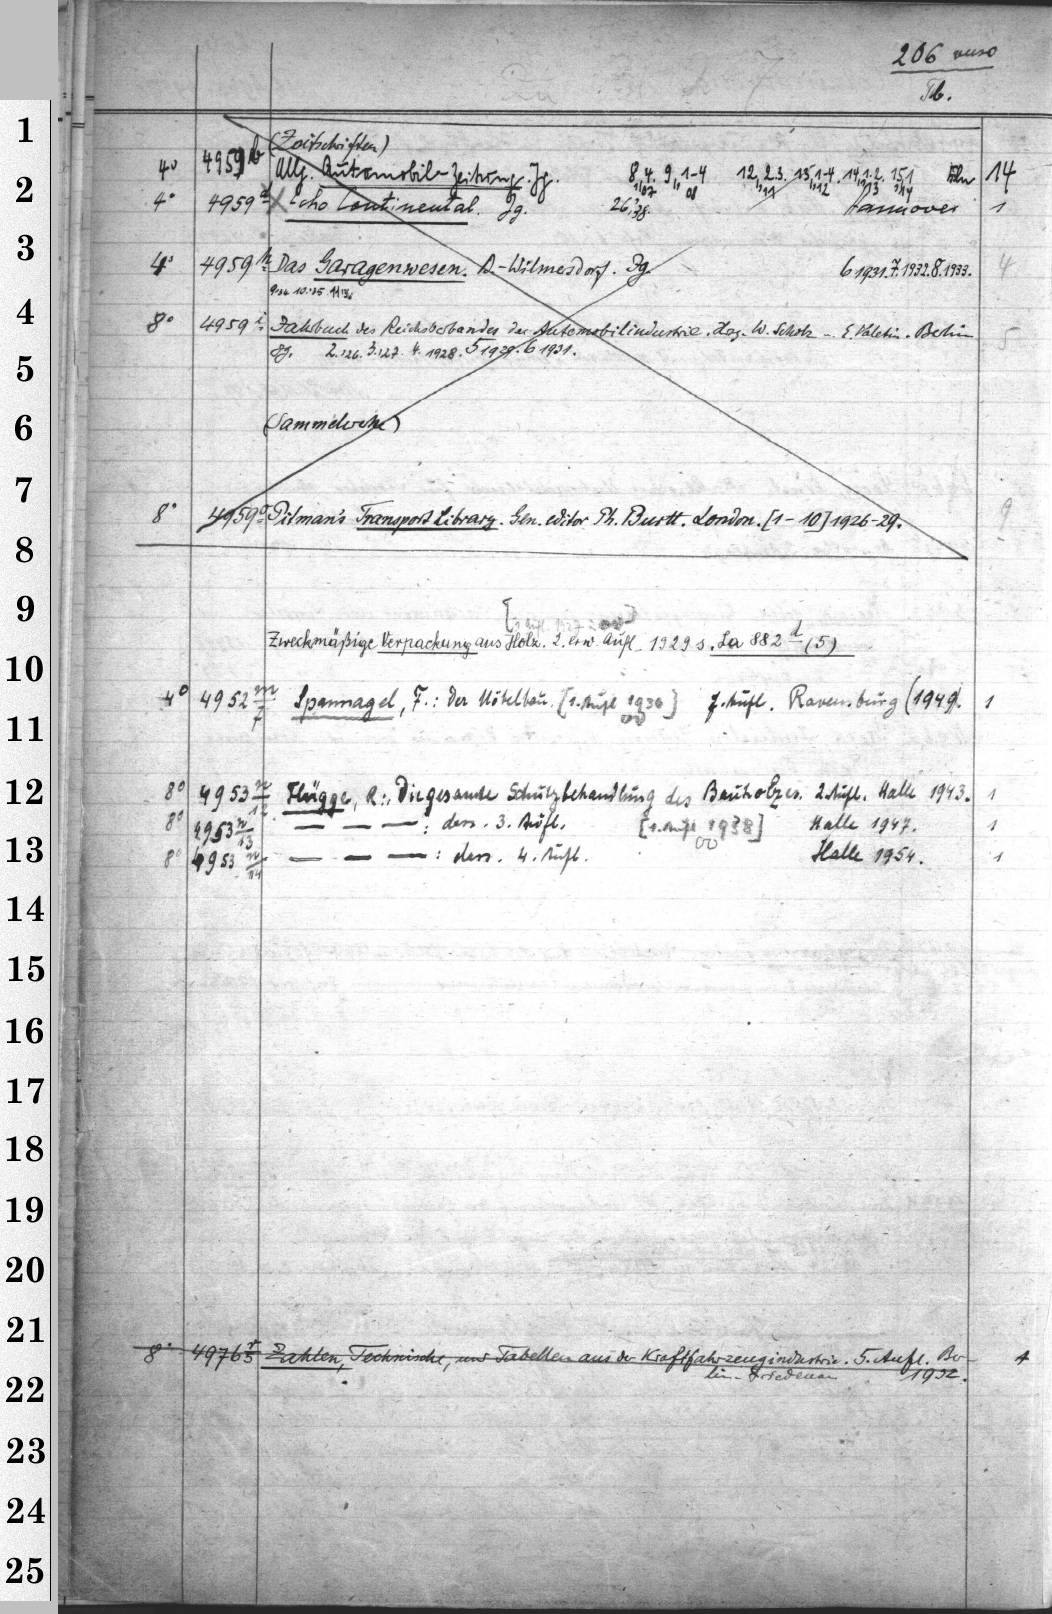 206 verso
Tb.
(Zeitschriften)
4° 4959 b Allg. Automobil-Zeitung. Jg. 8, 4. 9, 1-4 12, 2.3. 13, 1-4. 14, 1.2. 15, 1 14
1907 08 11 12 13 14
4° 4959 d Echo Continental. Jg. 26, 38. Hannover 1
4° 4959 h Das Garagenwesen. B.-Wilmersdorf. Jg. 6 1931. 7. 1932. 8. 1933. 4
9.34 10.35 11.36
8° 4959 i Jahrbuch des Reichsverbandes der Automobilindustrie. Hrg. W. Scholz - E. Valetin. Berlin 5
Jg. 2. 26. 3. 127. 4. 1928. 5 1929. 6 1931.
(Sammelwerke)
8° 4959 q Pitman's Transport Library. Gen. editor Ph. Burtt. London. [1-10] 1926-29. 9
[1. Aufl. 1927 = oo]
Zweckmäßige Verpackung aus Holz. 2. erw. Aufl. 1929 s. La 882 d (5)
4° 4952 m/7 Spannagel, F.: Der Möbelbau. [1. Aufl 1936] 7. Aufl. Ravensburg (1949). 1
oo
8° 4953 n/12 Flügge, R.: Die gesamte Schutzbehandlung des Bauholzes. 2. Aufl. Halle 1943. 1
8° 4953 n/13 — — —: dass. 3. Aufl. [1. Aufl 1938] Halle 1947. 1
oo
8° 4953 n/14 — — —: dass. 4. Aufl. Halle 1954. 1
8° 4976 r/5 Zahlen, Technische, und Tabellen aus der Kraftfahrzeugindustrie. 5. Aufl. Ber- 1
lin-Friedenau 1932.
1
2
3
4
5
6
7
8
9
10
11
12
13
14
15
16
17
18
19
20
21
22
23
24
25